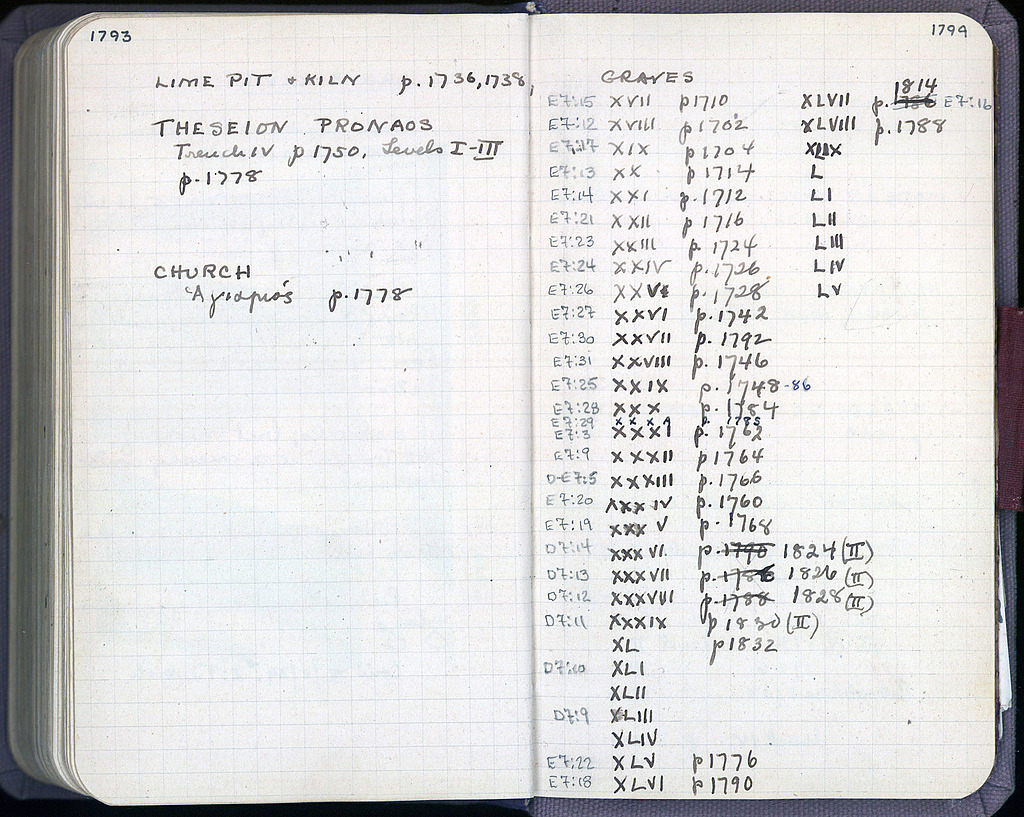 1793
LIME PIT + KILN p. 1736, 1738,
THESEION PRONAOS
Trench IV p 1750, Levels I-III
p. 1778
CHURCH
Ἁγιασμός p. 1778
1794
GRAVES
1814
E7:15 XVII p1710 XLVII p. E7:16
E7:12 XVIII p1702 XLVIII p. 1788
E7:17 XIX p1704 XLIX
E7:13 XX p 1714 L
E7:14 XXI p. 1712 LI
E7:21 XXII p 1716 LII
E7:23 XXIII p. 1724 LIII
E7:24 XXIV p. 1726 LIV
E7:26 XXV p. 1728 LV
E7:27 XXVI p. 1742
E7:30 XXVII p. 1792
E7:31 XXVIII p. 1746
E7:25 XXIX p. 1748-86
E7:28 XXX p. 1784
E7:29 p. 1785
E7:3 XXXI p. 1762
E7:9 XXXII p 1764
D-E7:5 XXXIII p. 1766
E7:20 XXXIV p. 1760
E7:19 XXXV p. 1768
D7:14 XXXVI p. 1790 1824 (II)
D7:13 XXXVII p. 1786 1826 (II)
D7:12 XXXVIII p. 1788 1828 (II)
D7:11 XXXIX p 1830 (II)
XL p 1832
D7:10 XLI
XLII
D7:9 XLIII
XLIV
E7:22 XLV p 1776
E7:18 XLVI p 1790